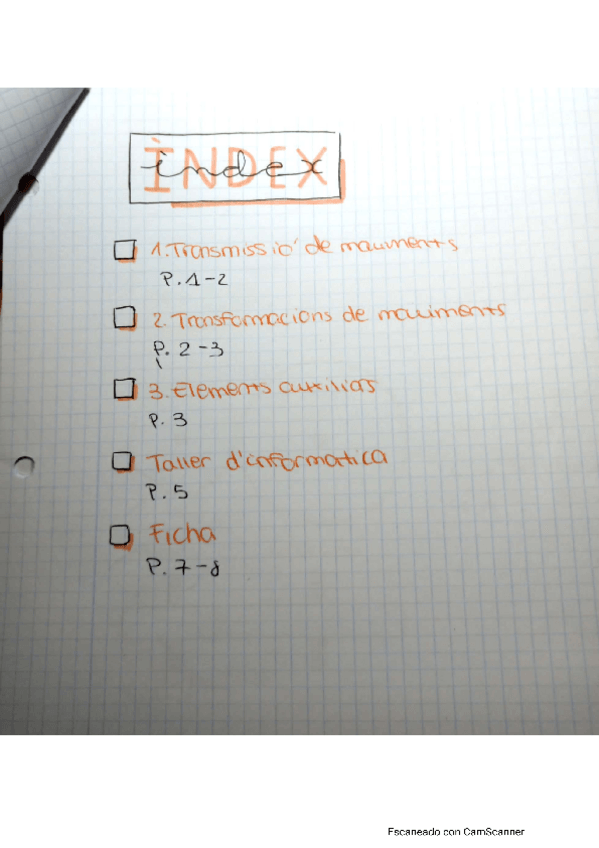 ÌNDEX
index
1. Transmissió de moviments
P. 1-2
2. Transformacions de moviments
P. 2-3
3. Elements auxiliars
P. 3
Taller d'informatica
P. 5
Ficha
P. 7-8
Escaneado con CamScanner